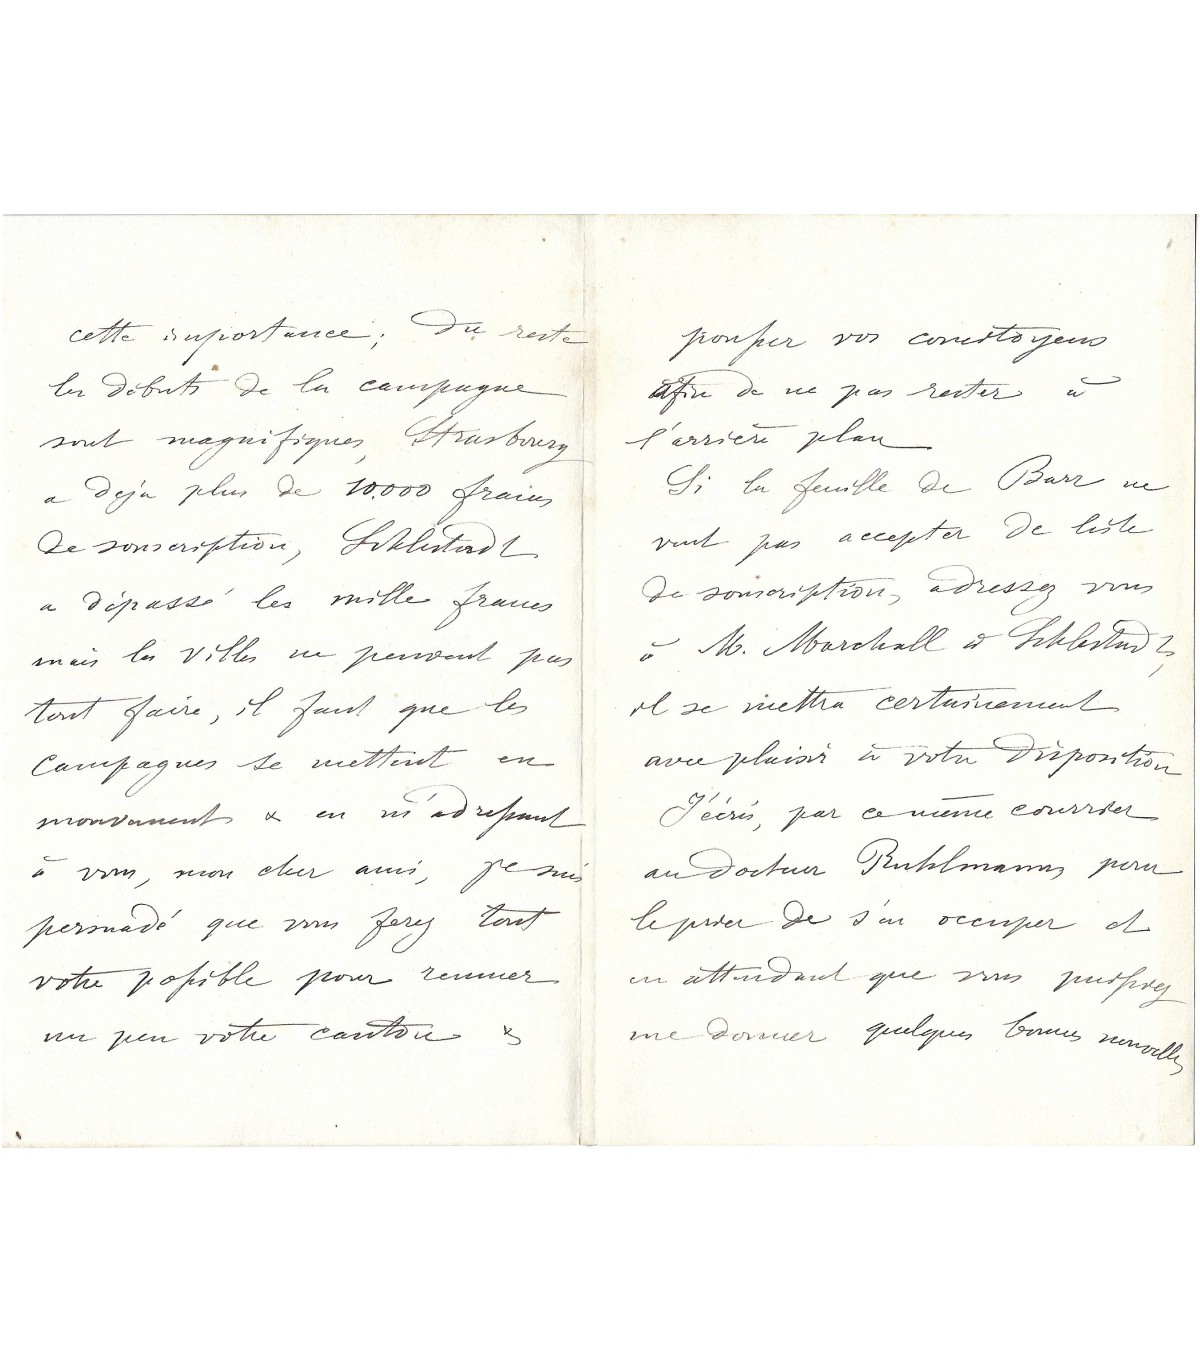 cette importance; Du reste
les débuts de la campagne
sont magnifiques, Strasbourg
a deja plus de 10.000 francs
de souscription, Schlestadt
a dépassé les mille francs
mais les villes ne peuvent pas
tout faire, il faut que les
campagnes se mettent en
mouvement & en m'adressant
à vous, mon cher ami, je suis
persuadé que vous ferez tout
votre possible pour remuer
un peu votre canton &
pousser vos concitoyens
afin de ne pas rester à
l'arrière plan
Si la feuille de Barr ne
veut pas accepter de liste
de souscription, adressez vous
à M. Marchall à Schlestadt,
il se mettra certainement
avec plaisir à votre disposition
J'écris, par ce même courrier
au docteur Ruhlmann pour
le prier de s'en occuper et
en attendant que vous puissiez
me donner quelques bonnes nouvelles